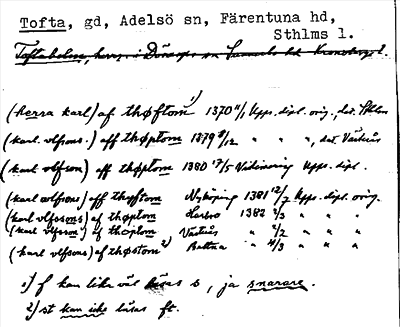 Tofta, gd, Adelsö sn, Färentuna hd,
Sthlms l.
Toftaholm, herrg. i Dörarps sn Sunnerbo hd Kronobergs l.
(herra karl) af thøftom 1) 1370 11/1 Upps. dipl. orig., dat. Sthlm
(karl vlfsons.) aff thøptom 1379 8/12 " " ", dat. Västerås
(karl vlfson) aff thøptom 1380 17/5 Vidisering Upps. dipl.
(karl wlfsons) aff thoftom Nyköping 1381 12/7 Upps. dipl. orig.
(karl vlfssons) af thoptom 1382 3/3 " " "
(karl vlfsson) af thoptom Västerås " 2/7 " " "
(karl vlfsons) af thøstom 2) " 11/3 " " "
1) f kan lika väl läsas s, ja snarare.
2) st kan icke läsas ft.